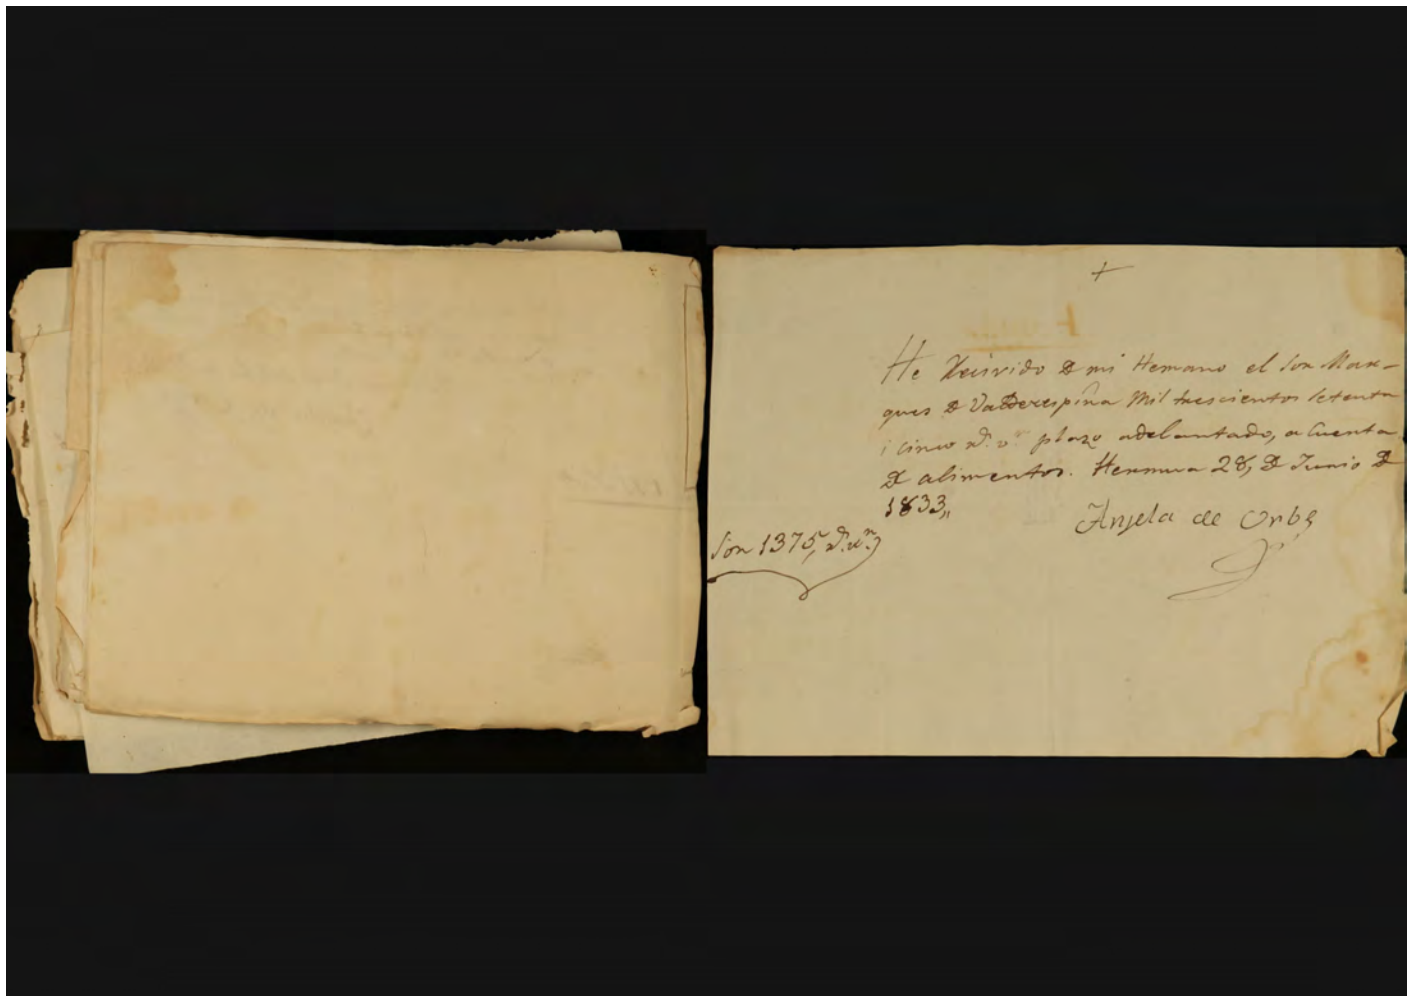 +
He Recivido D mi Hemano el Sor Mar-
ques D Valdeespina Mil trescientos setenta
i cinco rs. vn. plazo adelantado, a Cuenta
D alimentos. Hermua 28, D Junio D
1833,,
Anjela de Orbe
Son 1375, rs. vn.